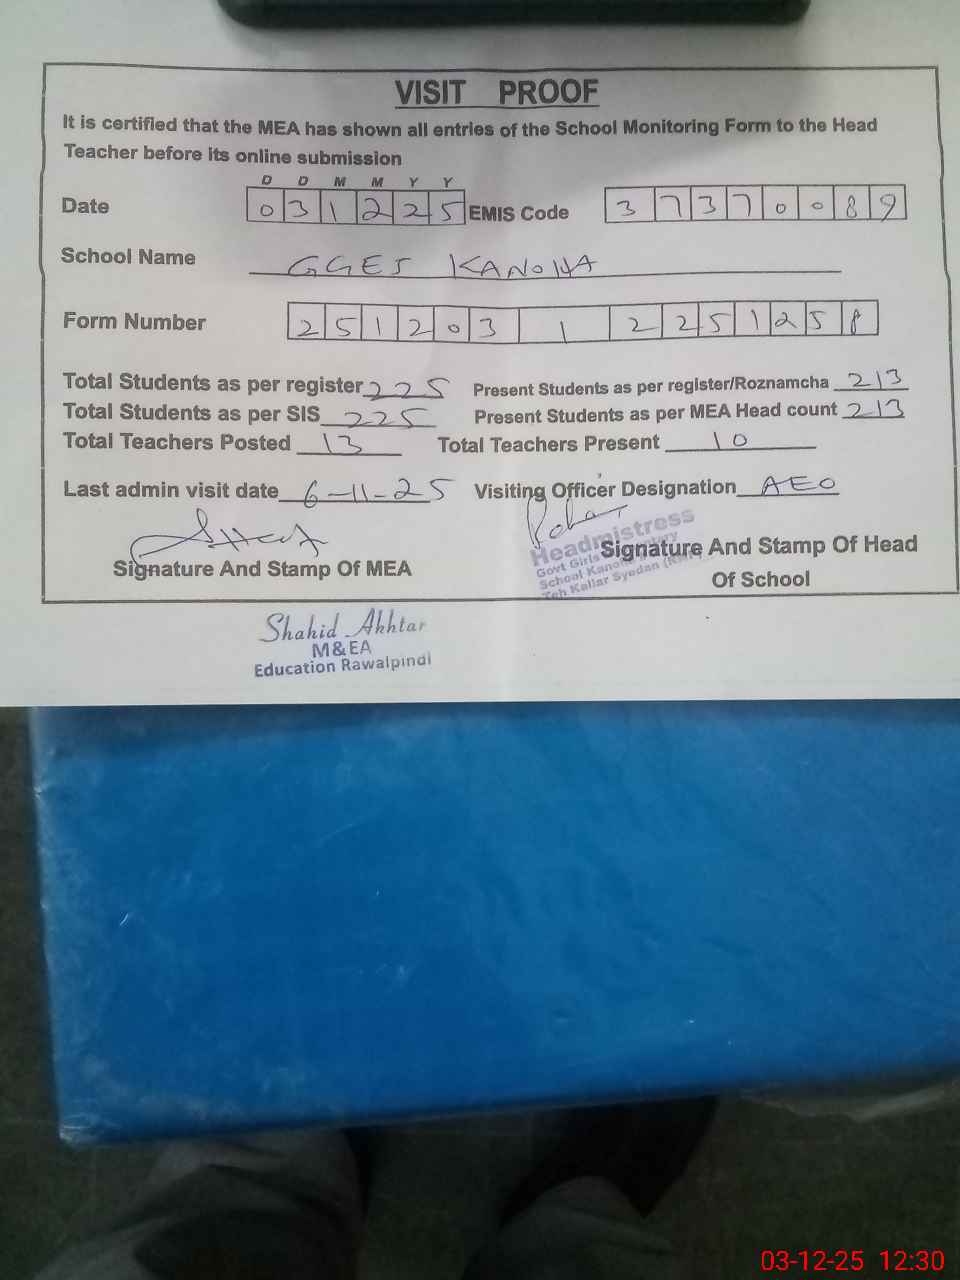 VISIT PROOF
It is certified that the MEA has shown all entries of the School Monitoring Form to the Head
Teacher before its online submission
D D M M Y Y
Date 0 3 1 2 2 5 EMIS Code 3 7 3 7 0 0 8 9
School Name GGES KANOHA
Form Number 2 5 1 2 0 3 1 2 2 5 1 2 5 8
Total Students as per register 225 Present Students as per register/Roznamcha 213
Total Students as per SIS 225 Present Students as per MEA Head count 213
Total Teachers Posted 13 Total Teachers Present 10
Last admin visit date 6-11-25 Visiting Officer Designation AEO
Headmistress
Govt Girls
School Kanoha
Teh Kallar Syedan
Signature And Stamp Of MEA
Signature And Stamp Of Head
Of School
Shahid Akhtar
M&EA
Education Rawalpindi
03-12-25 12:30